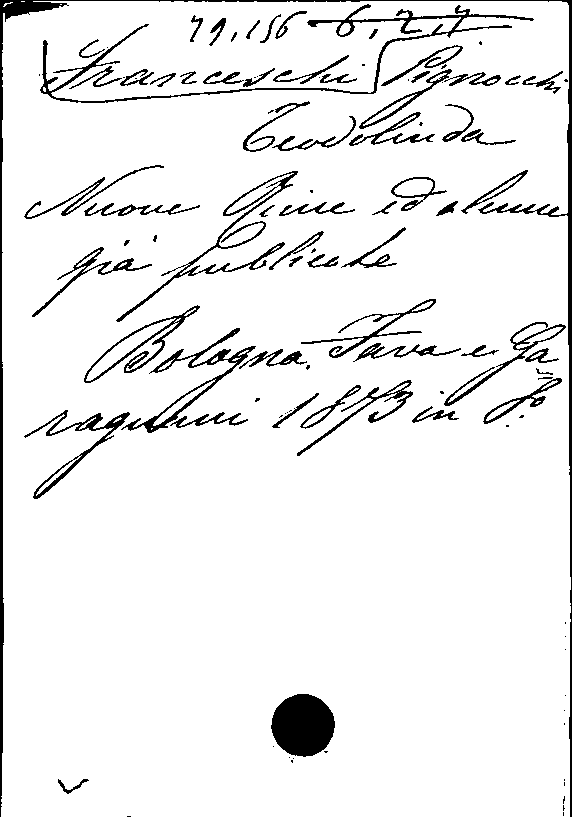 79,156 6,2,7
Franceschi Pignocchi
Teodolinda
Nuove Rime ed alcune
già pubblicate
Bologna. Fava e Ga=
ragnani 1873 in 8º.